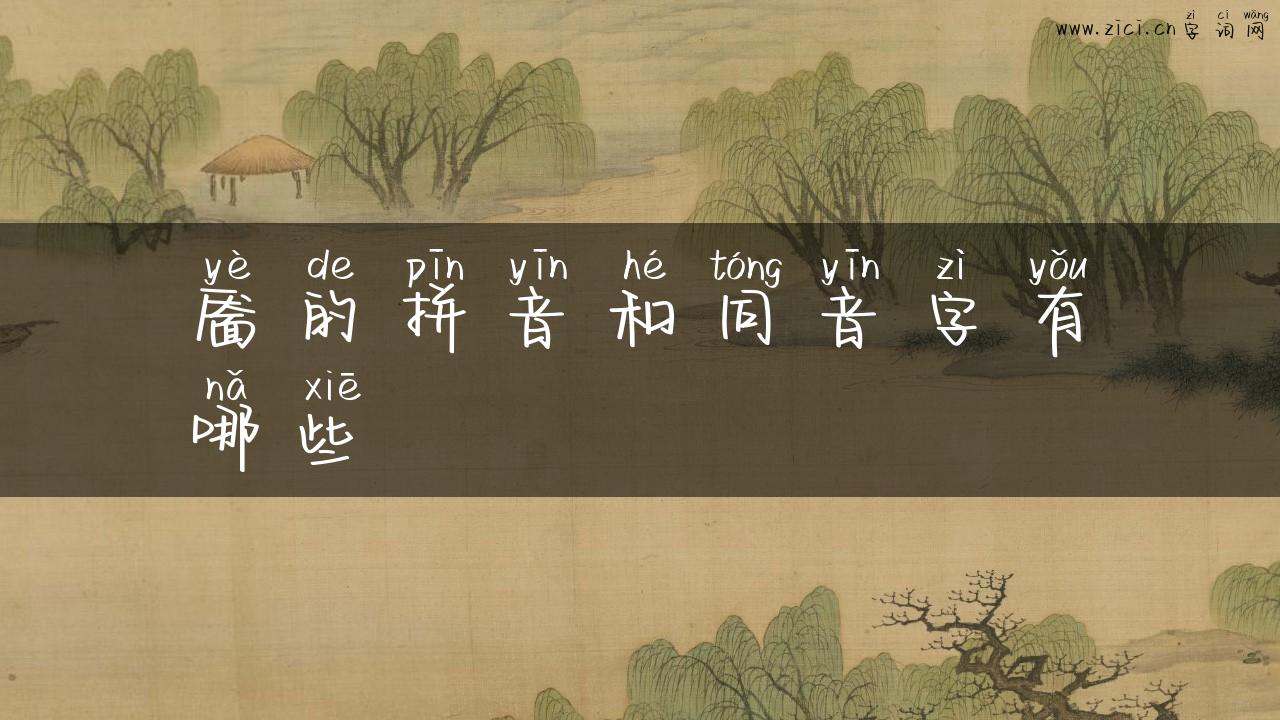 zì cí wǎng
www.zici.cn 字 词 网
yè de pīn yīn hé tóng yīn zì yǒu
靥 的 拼 音 和 同 音 字 有
nǎ xiē
哪 些